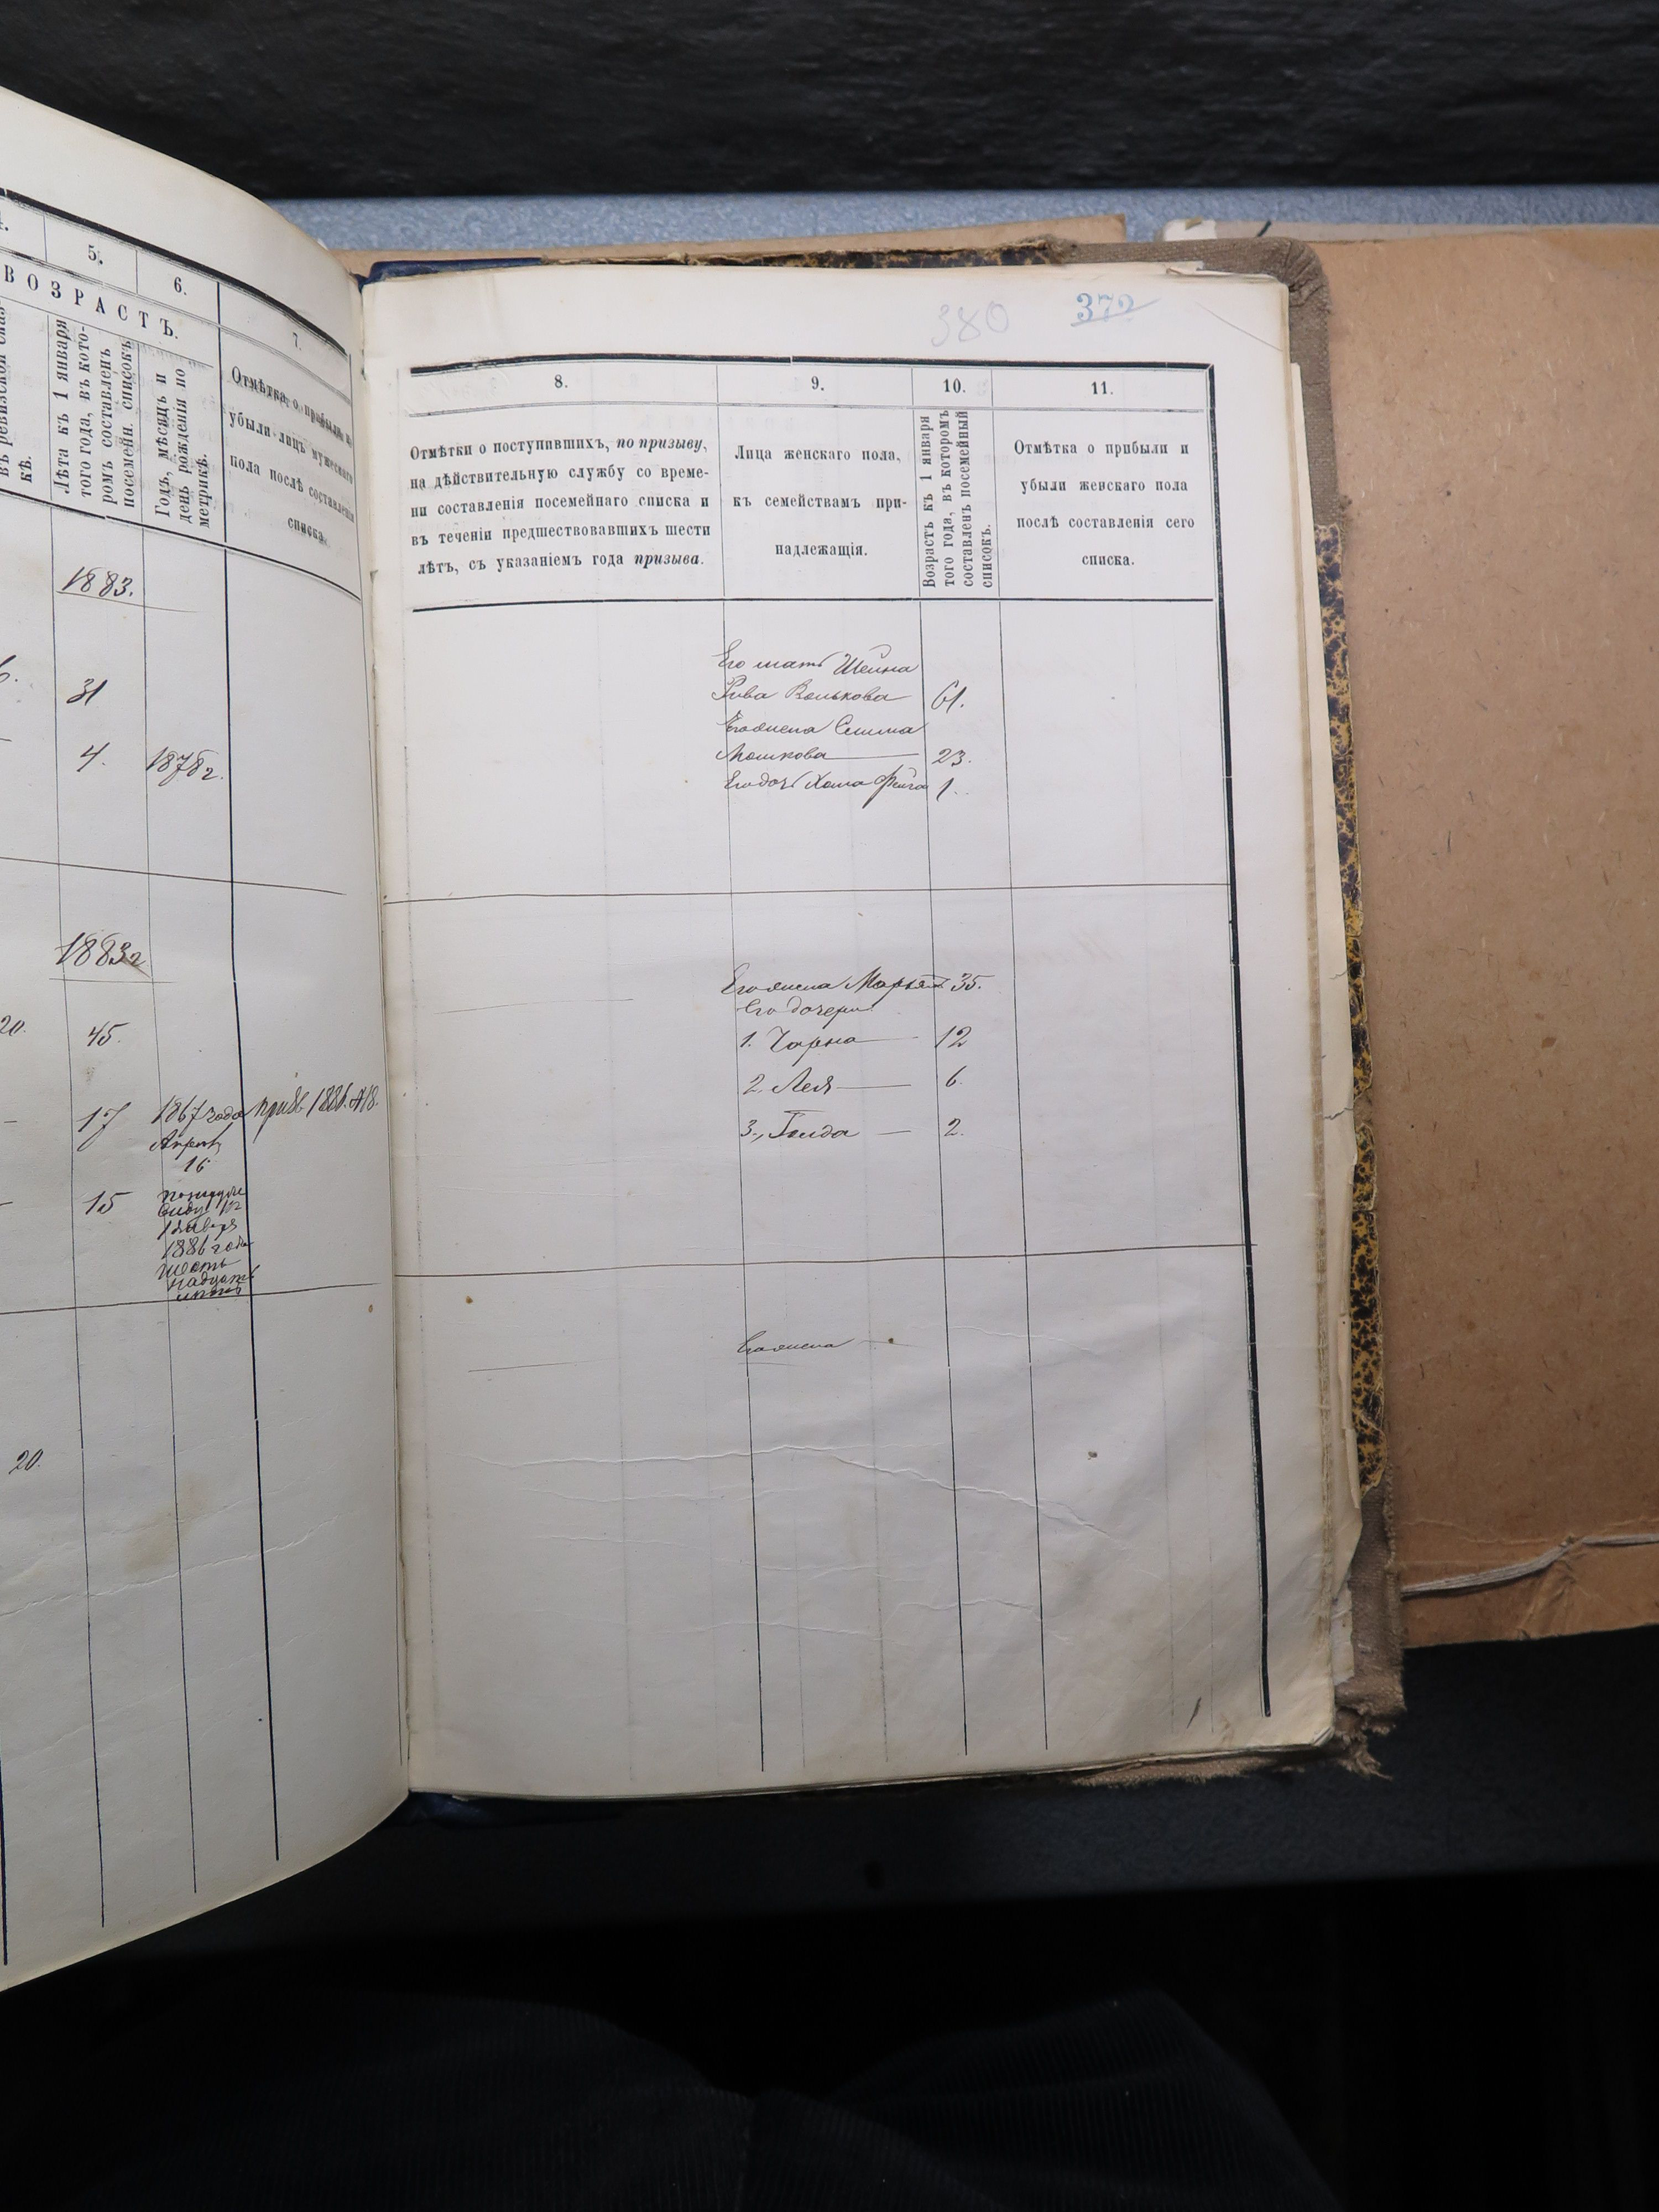 4.
5.
6.
7.
ВОЗРАСТЪ.
въ ревизской сказ-
кѣ.
Лѣта къ 1 января
того года, въ кото-
ромъ составленъ
посемейн. списокъ
Годъ, мѣсяцъ и
день рожденія по
метрикѣ.
Отмѣтка о прибыли и
убыли лицъ мужескаго
пола послѣ составленія
списка.
1883.
31
4. 1878 г.
1883 г
20. 45.
17 1867 года призв. 1886. №18.
Апрѣль
16
15
1 Января
1886 года
шесть
надцать
лѣтъ
20.
380 372
8.
9.
10.
11.
Отмѣтки о поступившихъ, по призыву,
на дѣйствительную службу со време-
ни составленія посемейнаго списка и
въ теченіи предшествовавшихъ шести
лѣтъ, съ указаніемъ года призыва.
Лица женскаго пола,
къ семействамъ при-
надлежащія.
Возрастъ къ 1 января
того года, въ которомъ
составленъ посемейный
списокъ.
Отмѣтка о прибыли и
убыли женскаго пола
послѣ составленія сего
списка.
Его мать Шейна
Рива Волькова 61.
Его жена Симма
Мошкова 23.
Его дочь Хома Фейга 1.
Его жена Марья 35.
Его дочери
1. Чарна 12
2. Лея 6.
3., Голда 2.
Его жена